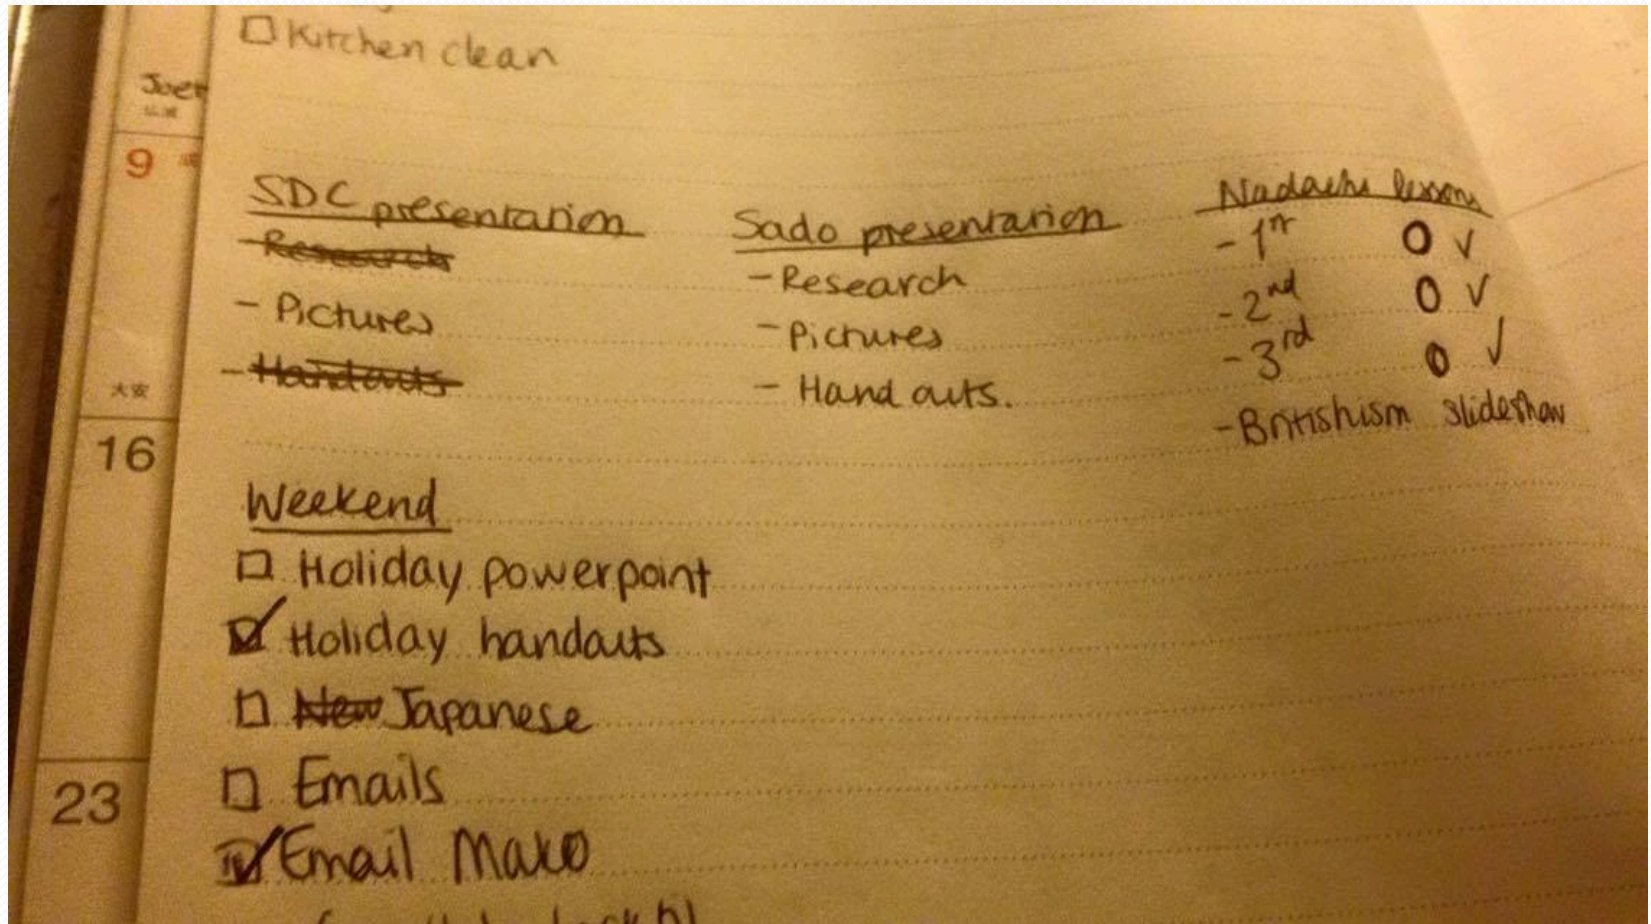 ☐ Kitchen clean
9
SDC presentation
- Research
- Pictures
- Handouts
Sado presentation
- Research
- Pictures
- Hand outs.
lessons
- 1st O ✓
- 2nd O ✓
- 3rd O ✓
- Britishism slideshow
大安
16
Weekend
☐ Holiday powerpoint
☑ Holiday handouts
☐ New Japanese
☐ Emails
23
☑ Email Mako